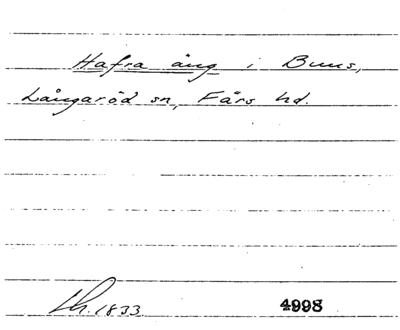 Hafra äng i Buus,
Långaröd sn, Färs hd.
Lh. 1833. 4998